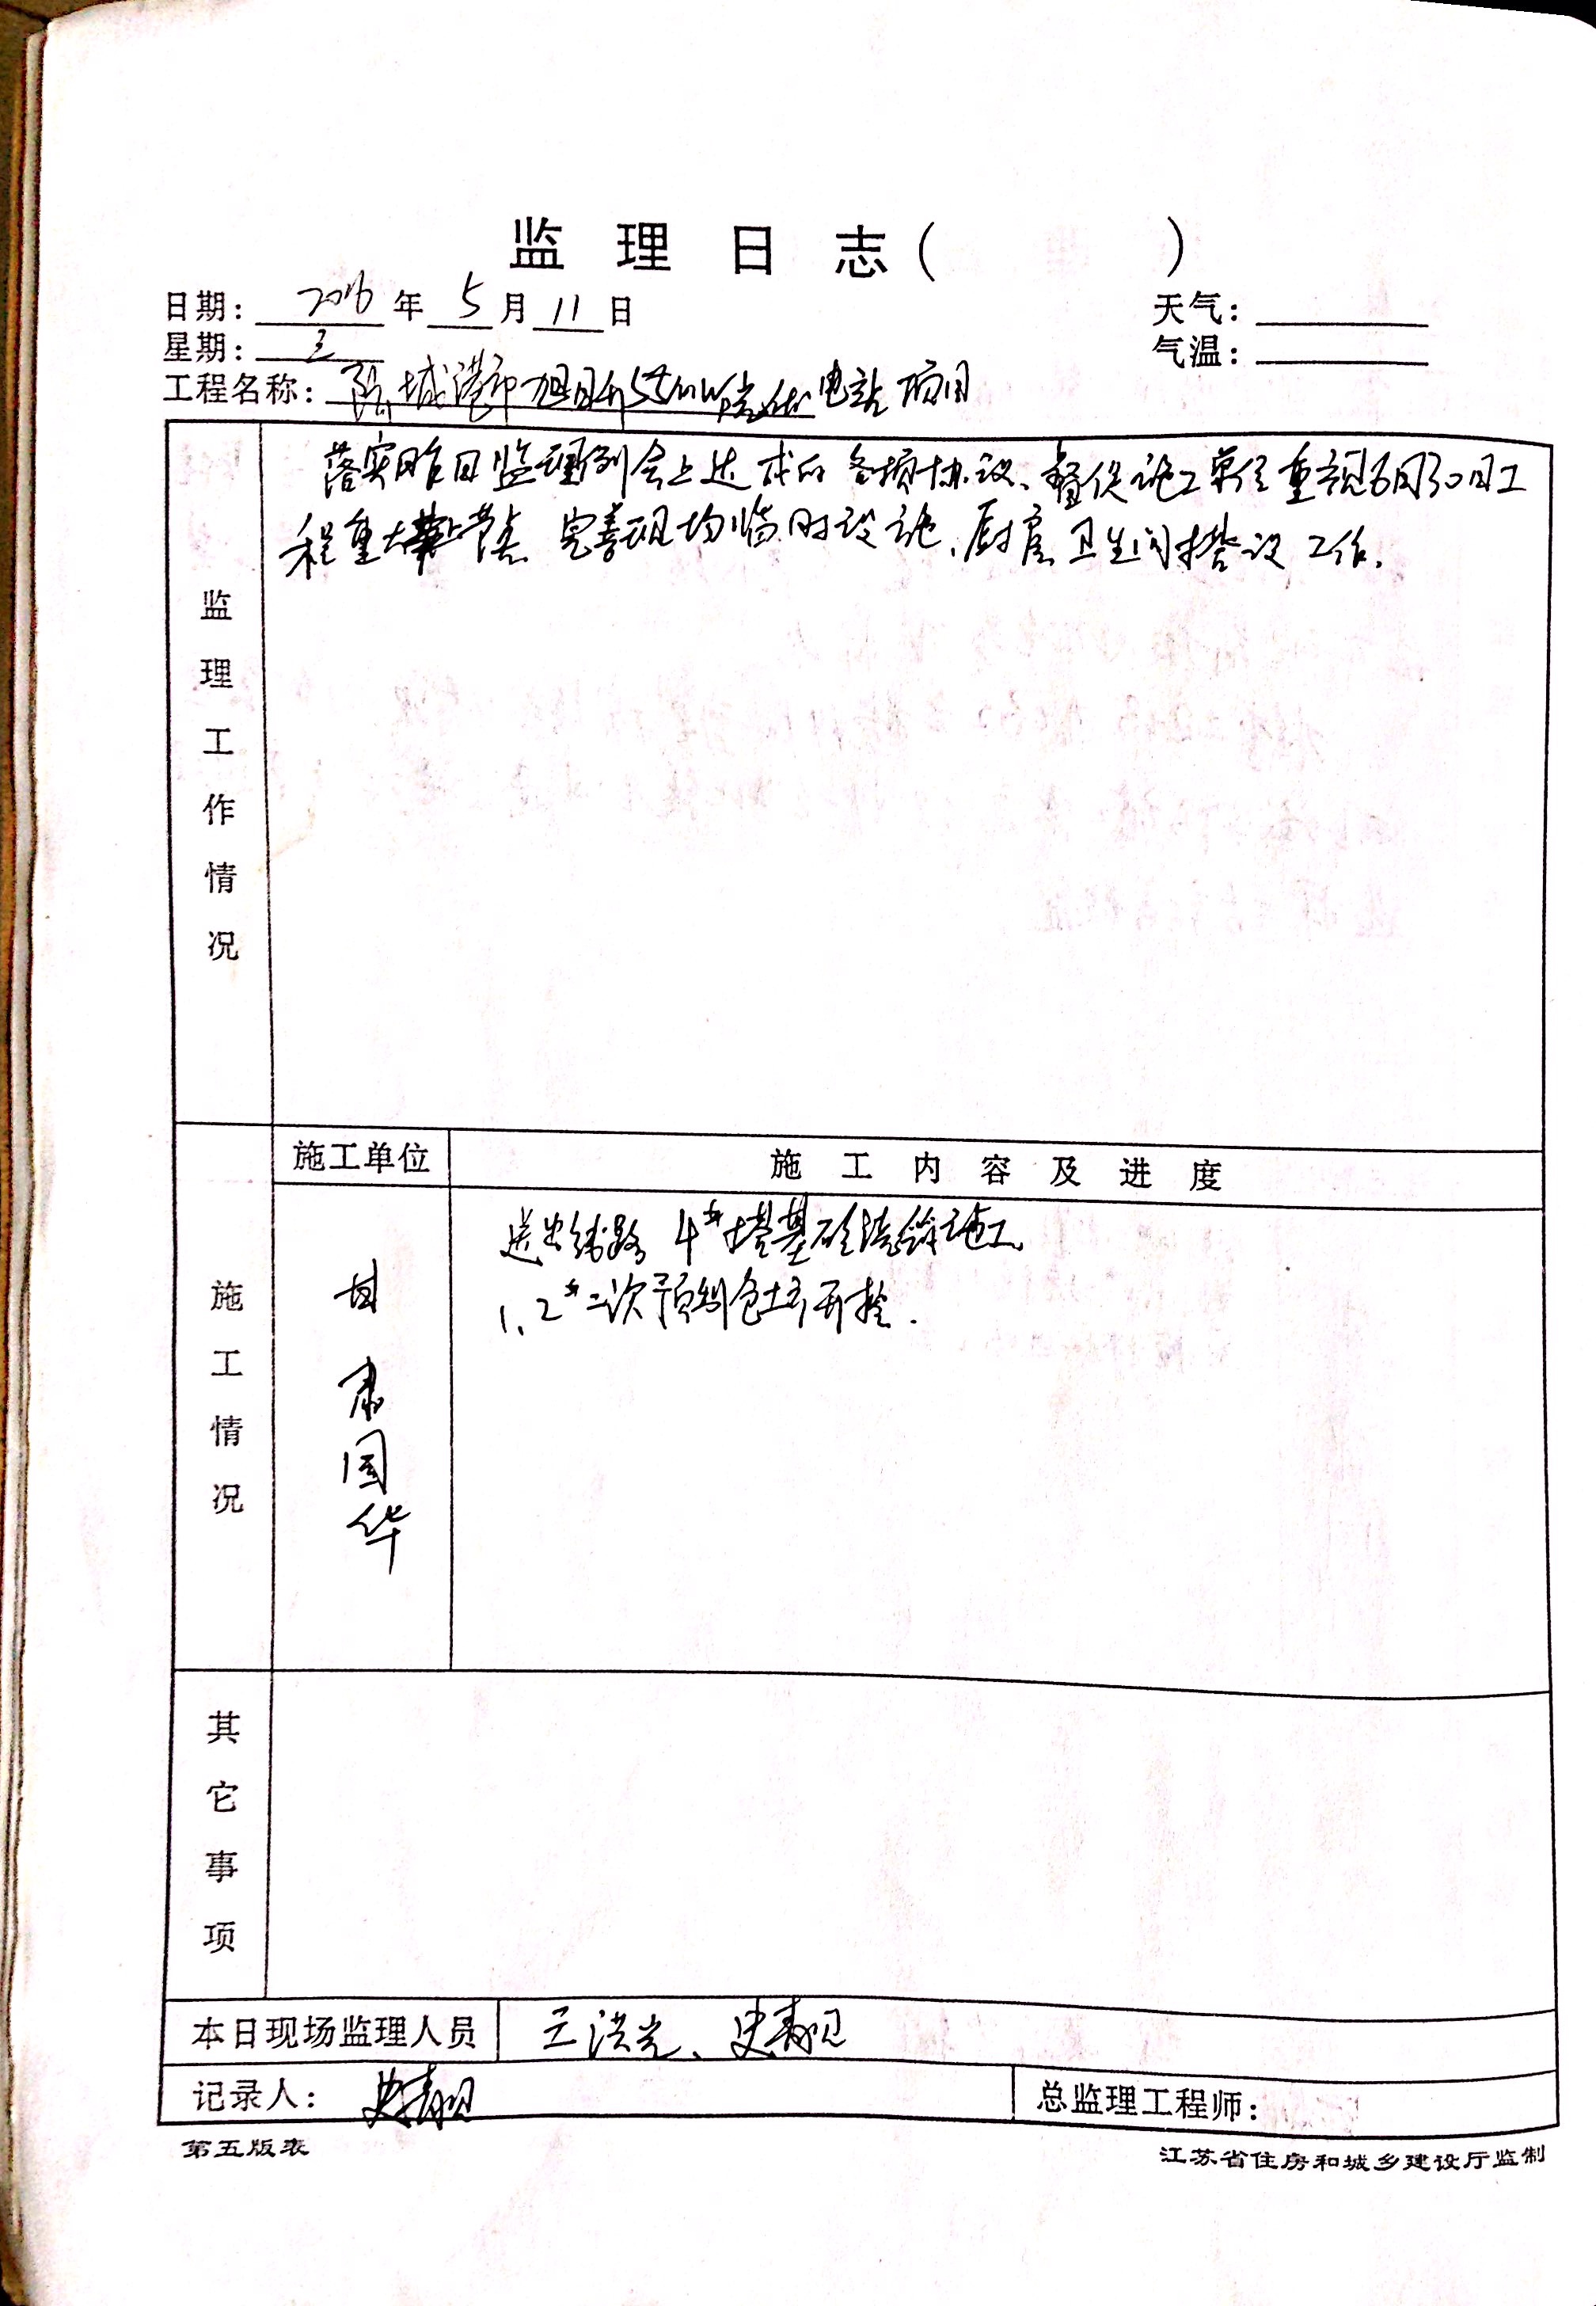 监理日志（ ）
日期： 2016 年 5 月 11 日 天气：
星期： 三 气温：
工程名称： 防城港市旭日升 光伏电站项目
落实昨日监理例会上达成的各项协议、督促施工单位重视6月30日工
程重大节点 完善现场临时设施、厨房卫生间搭设工作.
监理工作情况
施工单位 施工内容及进度
施工情况
甘肃国华
送出线路 4#塔基砼浇筑施工、
1、2#二次预制仓 开挖.
其它事项
本日现场监理人员 王洪光、史春
记录人： 史春 总监理工程师：
第五版表 江苏省住房和城乡建设厅监制